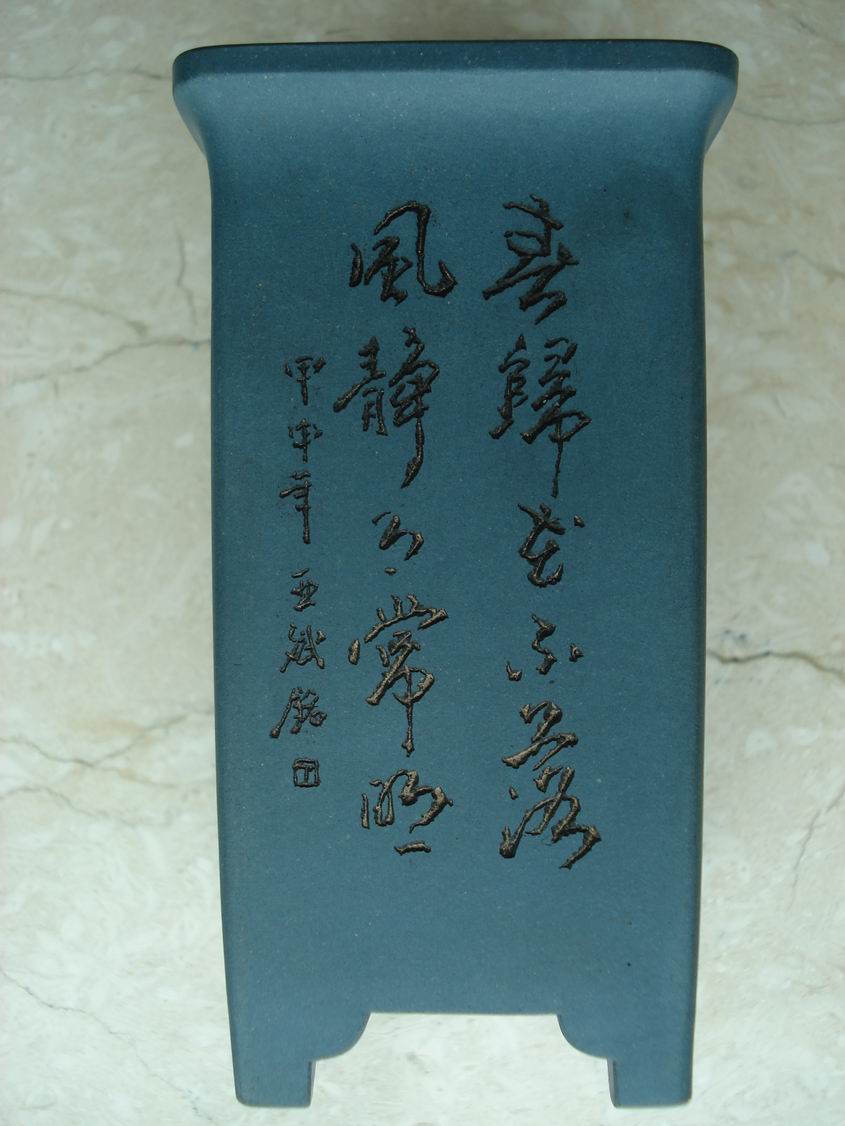 春歸花不落
風靜月常照
甲申年 亞斌銘